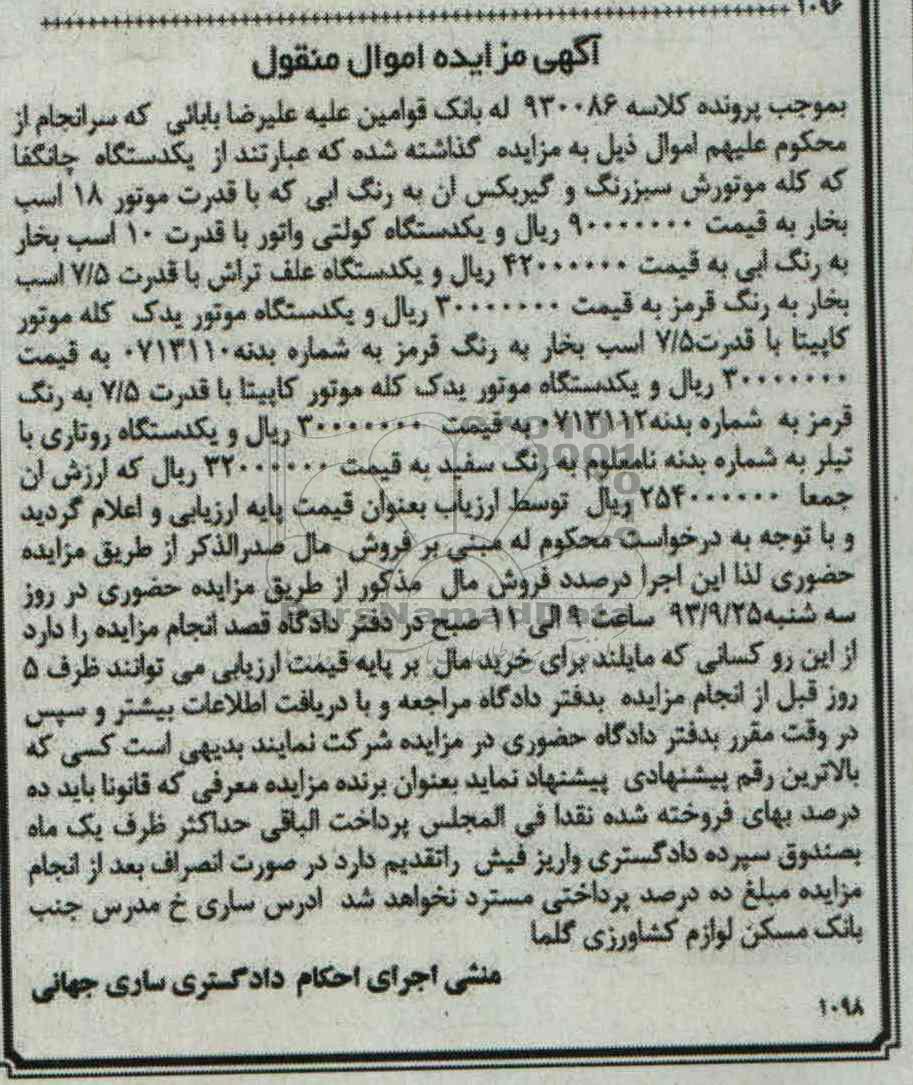 ۱۰۹۶
آگهی مزایده اموال منقول
بموجب پرونده کلاسه ۹۳۰۰۸۶ له بانک قوامین علیه علیرضا بابائی که سرانجام از
محکوم علیهم اموال ذیل به مزایده گذاشته شده که عبارتند از یکدستگاه چانگفا
که کله موتورش سبزرنگ و گیربکس ان به رنگ ابی که با قدرت موتور ۱۸ اسب
بخار به قیمت ۹۰۰۰۰۰۰۰ ریال و یکدستگاه کولتی واتور با قدرت ۱۰ اسب بخار
به رنگ آبی به قیمت ۴۲۰۰۰۰۰۰ ریال و یکدستگاه علف تراش با قدرت ۷/۵ اسب
بخار به رنگ قرمز به قیمت ۳۰۰۰۰۰۰۰ ریال و یکدستگاه موتور یدک کله موتور
کاپیتا با قدرت۷/۵ اسب بخار به رنگ قرمز به شماره بدنه۰۷۱۳۱۱۰ به قیمت
۳۰۰۰۰۰۰۰ ریال و یکدستگاه موتور یدک کله موتور کاپیتا با قدرت ۷/۵ به رنگ
قرمز به شماره بدنه۰۷۱۳۱۱۲ به قیمت ۳۰۰۰۰۰۰۰ ریال و یکدستگاه روتاری با
تیلر به شماره بدنه نامعلوم به رنگ سفید به قیمت ۳۲۰۰۰۰۰۰ ریال که ارزش ان
جمعا ۲۵۴۰۰۰۰۰۰ ریال توسط ارزیاب بعنوان قیمت پایه ارزیابی و اعلام گردید
و با توجه به درخواست محکوم له مبنی بر فروش مال صدرالذکر از طریق مزایده
حضوری لذا این اجرا درصدد فروش مال مذکور از طریق مزایده حضوری در روز
سه شنبه۹۳/۹/۲۵ ساعت ۹ الی ۱۱ صبح در دفتر دادگاه قصد انجام مزایده را دارد
از این رو کسانی که مایلند برای خرید مال بر پایه قیمت ارزیابی می توانند ظرف ۵
روز قبل از انجام مزایده بدفتر دادگاه مراجعه و با دریافت اطلاعات بیشتر و سپس
در وقت مقرر بدفتر دادگاه حضوری در مزایده شرکت نمایند بدیهی است کسی که
بالاترین رقم پیشنهادی پیشنهاد نماید بعنوان برنده مزایده معرفی که قانونا باید ده
درصد بهای فروخته شده نقدا فی المجلس پرداخت الباقی حداکثر ظرف یک ماه
بصندوق سپرده دادگستری واریز فیش راتقدیم دارد در صورت انصراف بعد از انجام
مزایده مبلغ ده درصد پرداختی مسترد نخواهد شد ادرس ساری خ مدرس جنب
بانک مسکن لوازم کشاورزی گلما
منشی اجرای احکام دادگستری ساری جهانی
۱۰۹۸
ParsNamadData